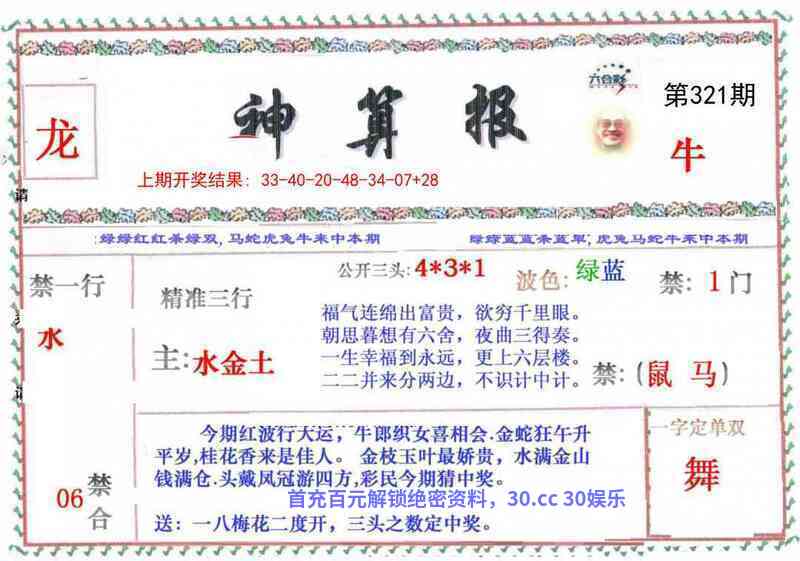 六合彩
第321期
龙
神算报
牛
上期开奖结果: 33-40-20-48-34-07+28
请
:绿绿红红杀绿双, 马蛇虎兔牛来中本期
绿绿蓝蓝杀蓝单, 虎兔马蛇牛来中本期
禁一行
水
精准三行
主:水金土
公开三头: 4*3*1
波色: 绿蓝
禁: 1门
福气连绵出富贵，欲穷千里眼。
朝思暮想有六舍，夜曲三得奏。
一生幸福到永远，更上六层楼。
二二并来分两边，不识计中计。
禁: (鼠 马)
请
今期红波行大运，牛郎织女喜相会.金蛇狂午升
平岁,桂花香来是佳人。 金枝玉叶最娇贵，水满金山
钱满仓.头戴凤冠游四方,彩民今期猜中奖。
首充百元解锁绝密资料，30.cc 30娱乐
送：一八梅花二度开，三头之数定中奖。
06
禁合
一字定单双
舞